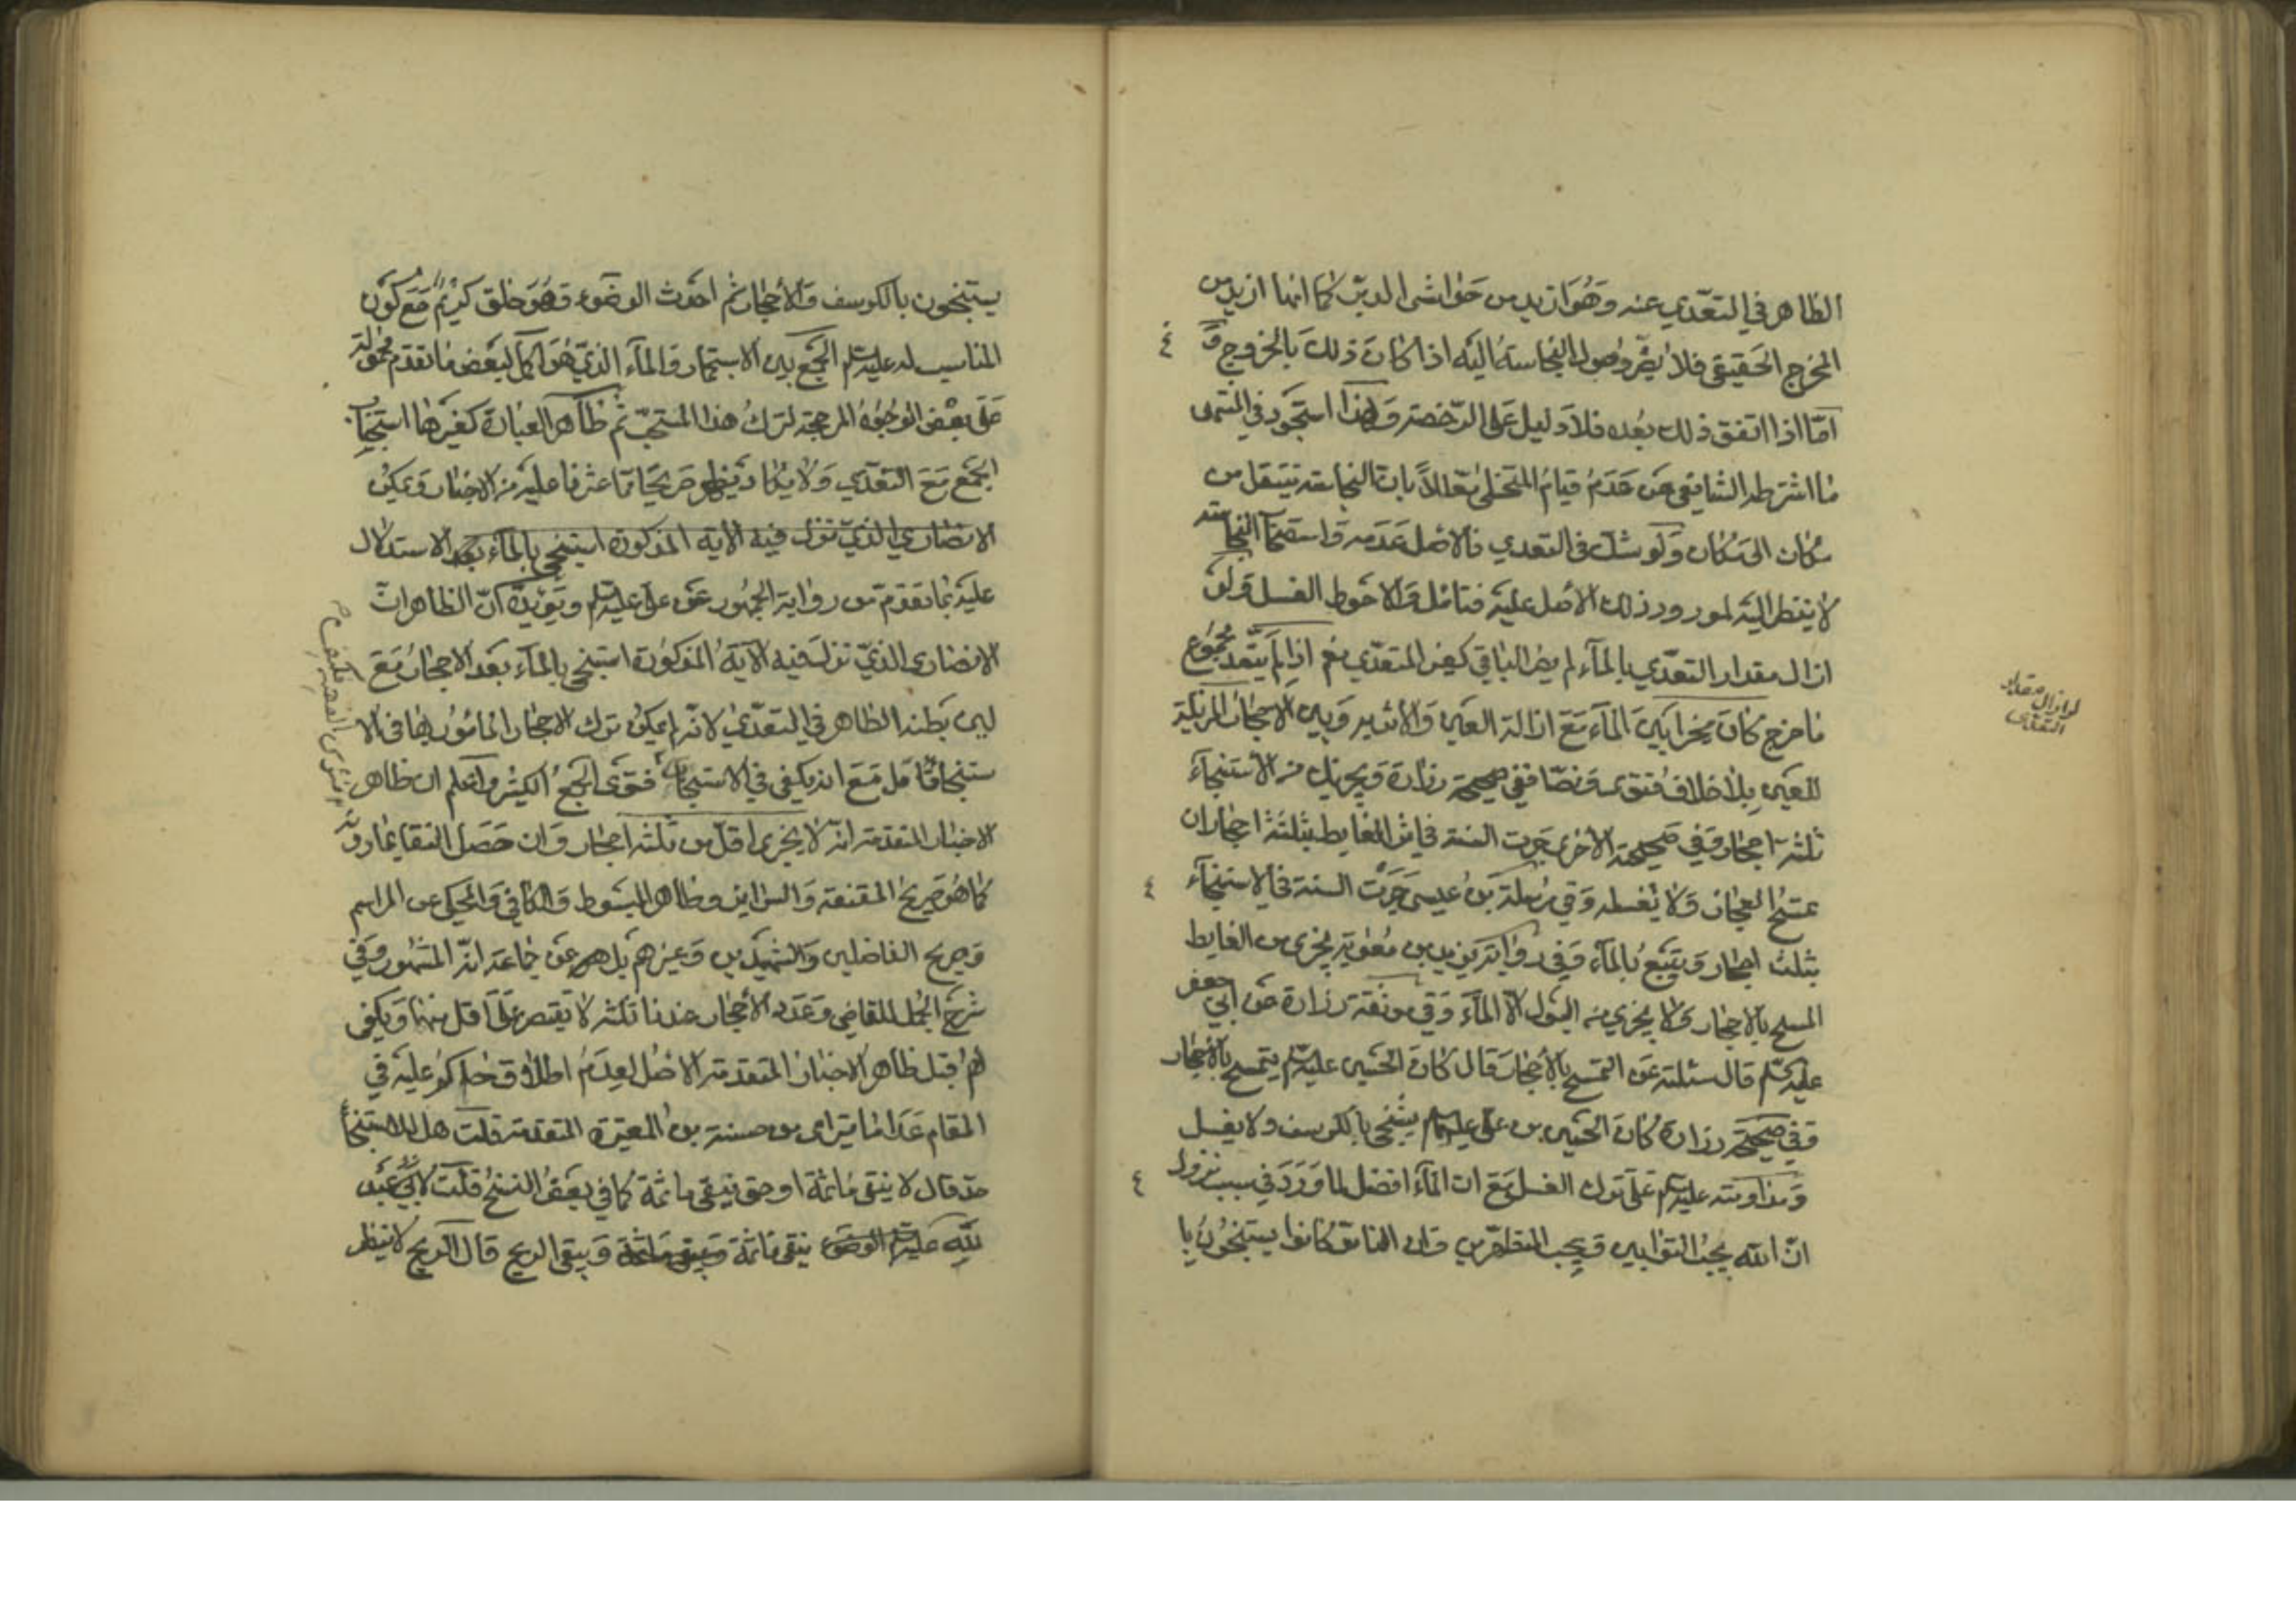 الظاهر في التعدّي عنه وهو ازيد من حواشي الدبر كما انها ازيد من
المخرج الحقيقي فلا يضر وصول النجاسة اليه اذا كان ذلك بالخروج و
امّا اذا اتفق ذلك بعده فلا دليل على الرخصة ولهذا استجود في المنتهى
ما اشترطه الشافعي من عدم قيام المتخلى معللاً بان النجاسة تنتقل من
مكان الى مكان ولو شك في التعدي فالاصل عدمه واستصحاب النجاسة
لا ينظر اليه لورود ذلك الاصل عليه فتامل والاحوط الغسل ولو
ازال مقدار التعدّي بالماء لم يصر الباقي كغير المتعدّي نعم اذا لم يتعد مجموع
ما خرج كان مخيرا بين الماء مع ازالة العين والاثر وبين الاحجار المزيلة
للعين بلا خلاف فتوى ونصّا ففي صحيحة زرارة ويجزيك من الاستنجاء
ثلثة احجار وفي صحيحته الاخرى جرت السنة في اثر الغايط بثلثة احجار ان
تمسح العجان ولا تغسله وفي مرسلة بن عيسى جرت السنة في الاستنجاء
بثلث احجار ويتبع بالماء وفي رواية يزيد بن معوية يجزي من الغايط
المسح بالاحجار ولا يجزي من البول الا الماء وفي موثقة زرارة عن ابي جعفر
عليه السلم قال سئلته عن التمسح بالاحجار قال كان الحسين عليه السلم يتمسح بالاحجار
وفي صحيحة زرارة كان الحسين بن علي عليهما السلم يستنجي بالكرسف ولا يغسل
ومداومته عليه السلم على ترك الغسل مع ان الماء افضل لما ورد في سبب نزول
انّ الله يحب التوابين ويحب المتطهّرين وان الناس كانوا يستنجون با
لو ازال مقدار
التعدي
يستنجون بالكرسف والاحجار ثم احدث الوضوء وهو خلق كريم مع كون
المناسب له عليه السلم الجمع بين الاستجمار والماء الذي هو اكمل لبعض ما تقدم محمولة
على بعض الوجوه المرجحة لترك هذا المستحب ثم ظاهر العبارة كغيرها استحباب
الجمع مع التعدّي ولا يكاد يظهر صريحا مما عثرنا عليه من الاخبار ويمكن
الانصاري الذي نزل فيه الاية المذكورة استنجى بالماء بعد الاستدلال
عليه بما تقدم من رواية الجمهور عن علي عليه السلم ويؤيده انّ الظاهر انّ
الانصاري الذي نزلت فيه الآية المذكورة استنجى بالماء بعد الاحجار مع
لين بطنه الظاهر في التعدّي لانّه لم يمكن ترك الاحجار المامور بها في الا
ستنجا فتامل مع انه يكفي في الاستحباب فتوى الجمع الكثير واعلم ان ظاهر
الاخبار المتقدمة انّه لا يجزي اقل من ثلثه احجار وان حصل النقا بما دونه
كما هو صريح المقنعة والسراير وظاهر المبسوط والكافي والمحكي عن المراسم
وصريح الفاضلين والشهيدين وغيرهم بل عن جماعة انّه المشهور وفي
شرح الجمل للقاضي وعدد الاحجار عندنا ثلثه لا يقتصر على اقل منها ويكفي
لهم قبل ظاهر الاخبار المتقدمة الاصل لعدم اطلاق حاكم عليه في
المقام عدا ما يترائى من حسنة بن المغيرة المتقدمة قلت هل للاستنجاء
حدّ قال لا ينقى ما ثمة او حتى ينقى ما ثمة كما في بعض النسخ قلت لابي عبد
الله عليه السلم الوضوء ينقى ما ثمة ويبقى الريح قال الريح لا ينظر